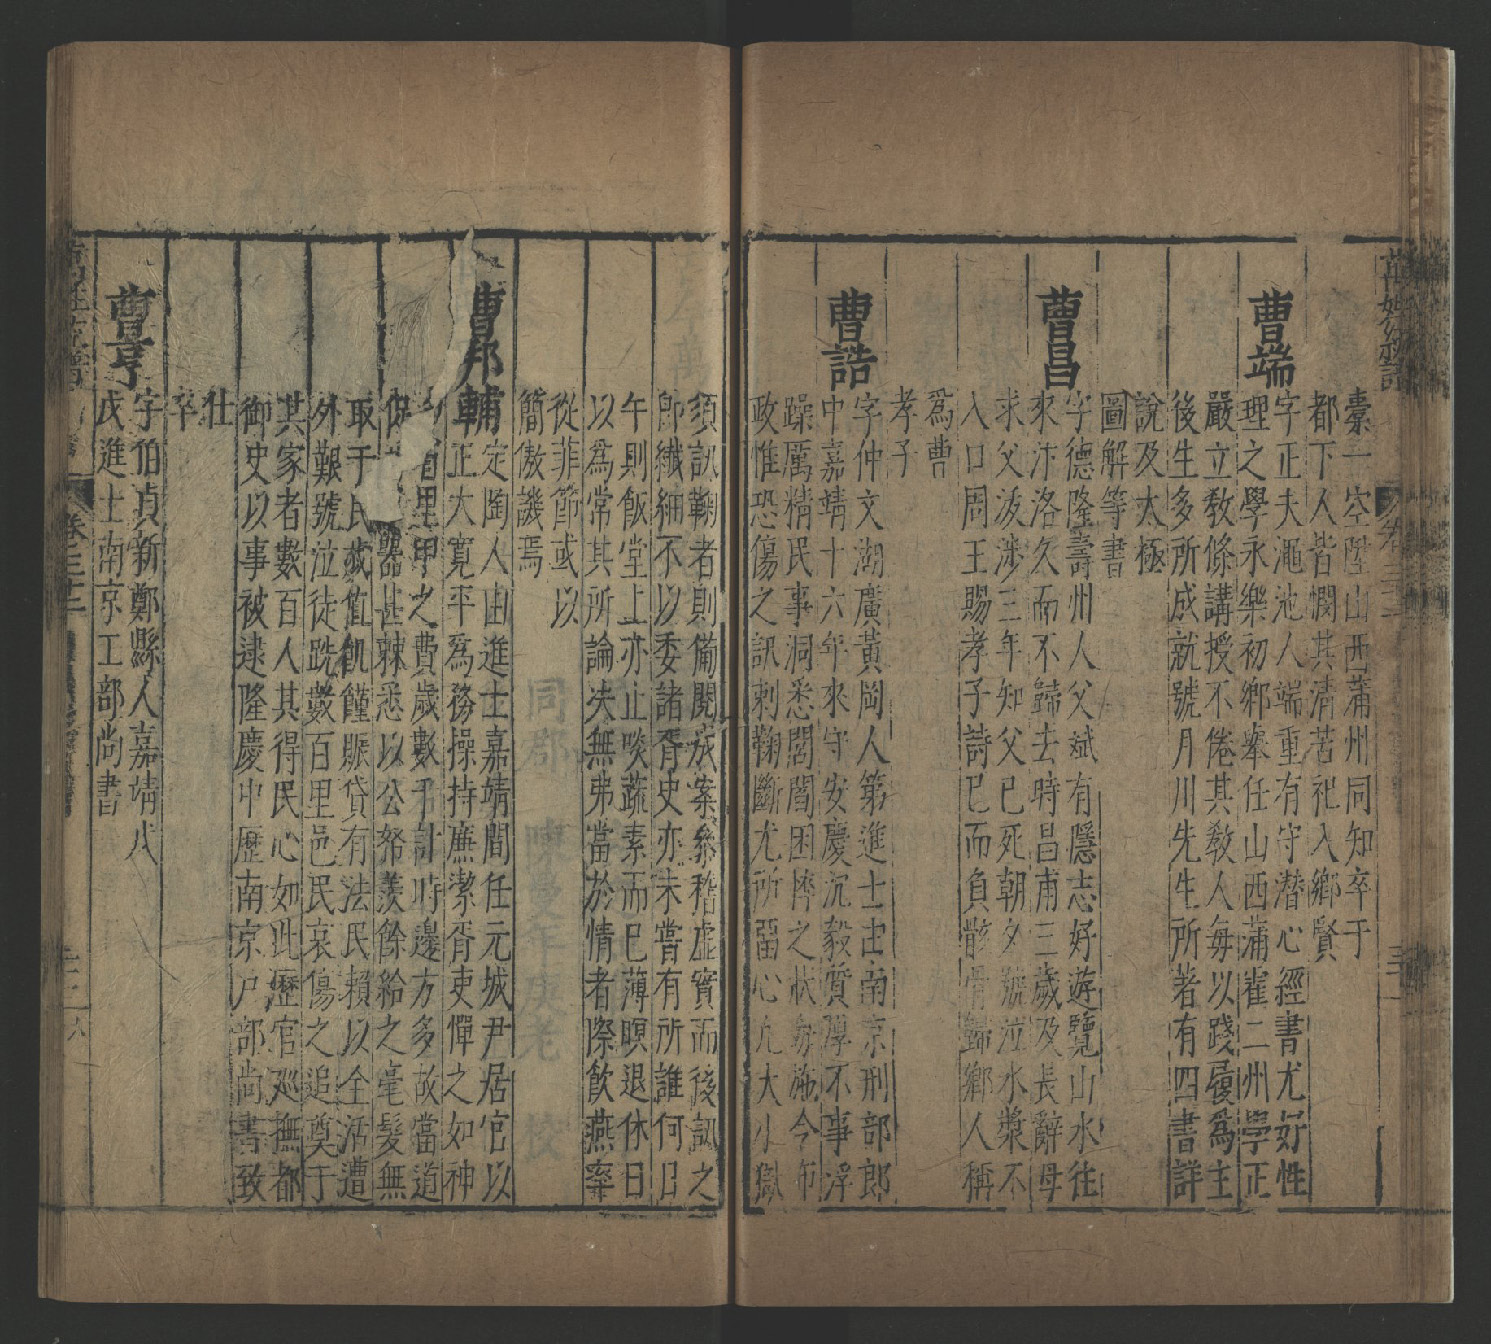 橐一空陞山西蒲州同知卒于
都下人皆憫其清苦祀入鄉賢
曹端
字正夫澠池人端重有守潜心經書尤好性
理之學永樂初鄉舉任山西蒲霍二州學正
嚴立教條講授不倦其教人每以踐履爲主
後生多所成就號月川先生所著有四書詳
說及太極
圖解等書
曹昌
字德隆壽州人父斌有隱志好遊覽山水往
來汴洛久而不歸去時昌甫三歲及長辭母
求父汲涉三年知父已死朝夕號泣水漿不
入口周王賜孝子詩已而負骸骨歸鄉人稱
爲曹
孝子
曹誥
字仲文湖廣黃岡人第進士由南京刑部郎
中嘉靖十六年來守安慶沉毅質厚不事浮
躁厲精民事洞悉閭閻困瘁之狀每施令布
政惟恐傷之訊刺鞠斷尤所留心凢大小獄
須訊鞠者則備閱成案叅稽虛實而後訊之
卽纖細不以委諸胥史亦未嘗有所誰何日
午則飯堂上亦止啖蔬素而已薄暝退休日
以爲常其所論决無弗當於情者際飲燕率
從菲節或以
簡傲譏焉
曹邦輔
定陶人由進士嘉靖間任元城尹居官以
正大寬平爲務操持廉潔胥吏憚之如神
里甲之費歲數千計時邊方多故當道
器甚棘悉以公帑羨餘給之毫髮無
取于民歲值饑饉賑貸有法民賴以全活遭
外艱號泣徒跣數百里邑民哀傷之追奠于
其家者數百人其得民心如此歷官廵撫都
御史以事被逮隆慶中歷南京戶部尚書致
仕
卒
曹亨
字伯貞新鄭縣人嘉靖戊
戌進士南京工部尚書